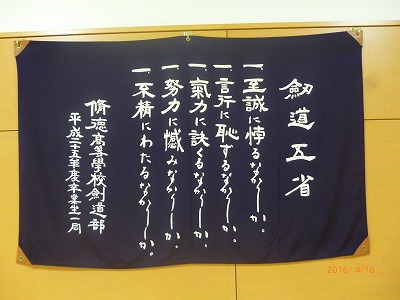 劔道五省
一、至誠に悖るなかりしか。
一、言行に恥ずるなかりしか。
一、氣力に訣くるなかりしか。
一、努力に憾みなかりしか。
一、不精にわたるなかりしか。
脩德高等學校劍道部
平成二十五年度卒業生一同
2016/ 4/16